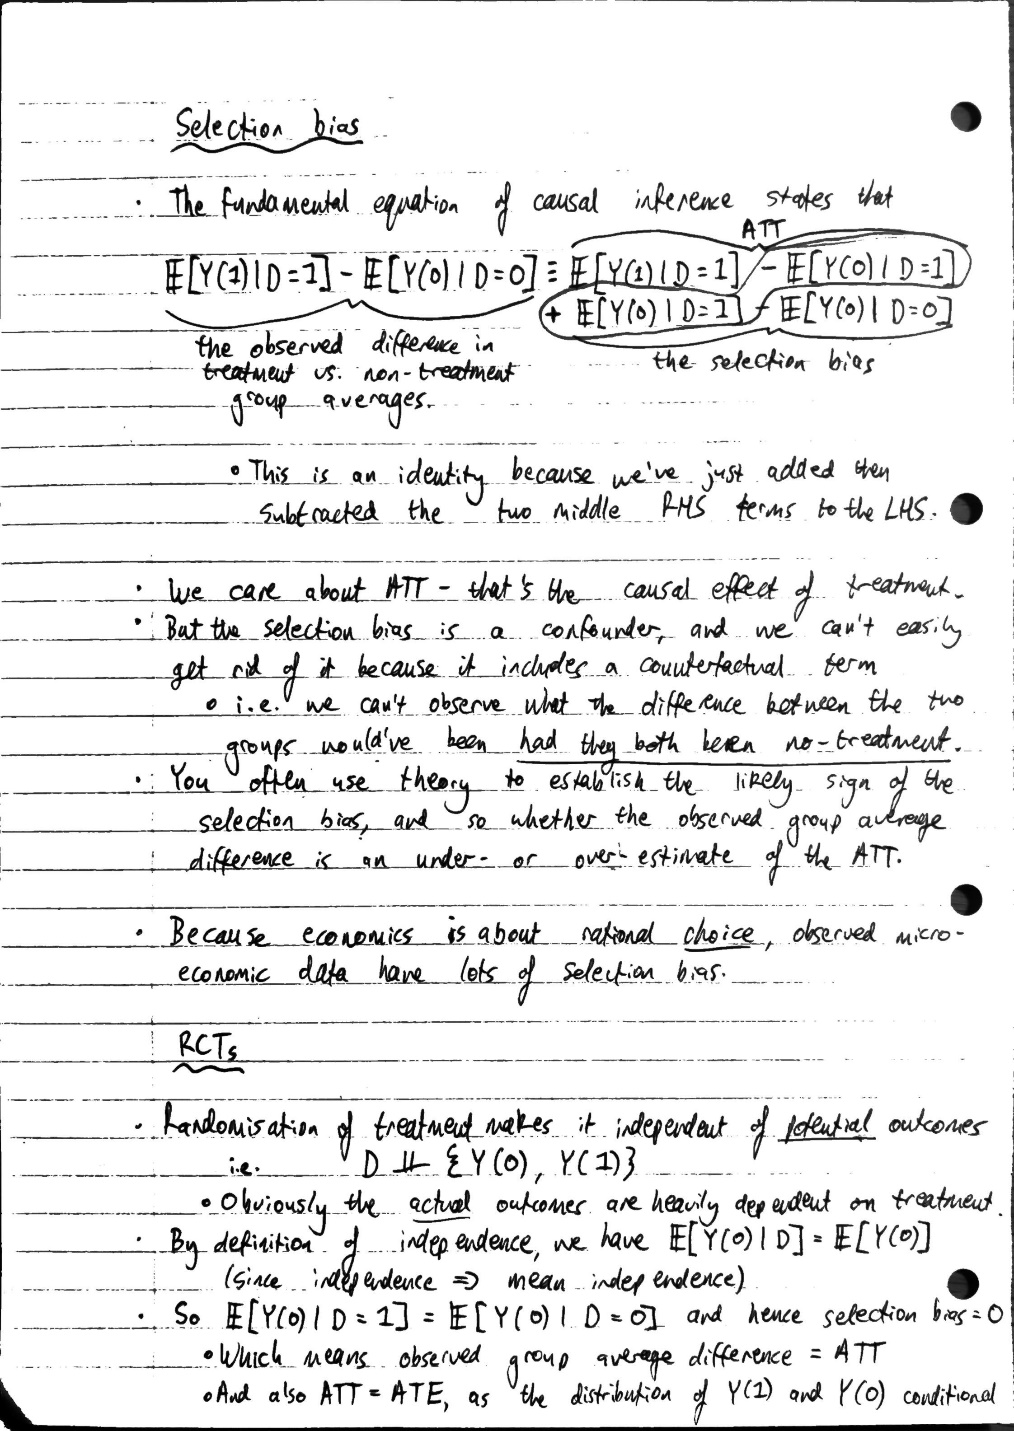 Selection bias
· The fundamental equation of causal inference states that
ATT
𝔼[Y(1)|D=1] - 𝔼[Y(0)|D=0] ≡ 𝔼[Y(1)|D=1] - 𝔼[Y(0)|D=1]
+ 𝔼[Y(0)|D=1] - 𝔼[Y(0)|D=0]
the observed difference in
treatment vs. non-treatment
group averages.
the selection bias
• This is an identity because we've just added then
subtracted the two middle RHS terms to the LHS.
· We care about ATT - that's the causal effect of treatment.
· But the selection bias is a confounder, and we can't easily
get rid of it because it includes a counterfactual term
• i.e. we can't observe what the difference between the two
groups would've been had they both been no-treatment.
· You often use theory to establish the likely sign of the
selection bias, and so whether the observed group average
difference is an under- or over-estimate of the ATT.
· Because economics is about rational choice, observed micro-
economic data have lots of selection bias.
RCTs
· Randomisation of treatment makes it independent of potential outcomes
i.e. D ⫫ {Y(0), Y(1)}
• Obviously the actual outcomes are heavily dependent on treatment.
· By definition of independence, we have 𝔼[Y(0)|D] = 𝔼[Y(0)]
(since independence ⇒ mean independence)
· So 𝔼[Y(0)|D=1] = 𝔼[Y(0)|D=0] and hence selection bias = 0
• Which means observed group average difference = ATT
• And also ATT = ATE, as the distribution of Y(1) and Y(0) conditional